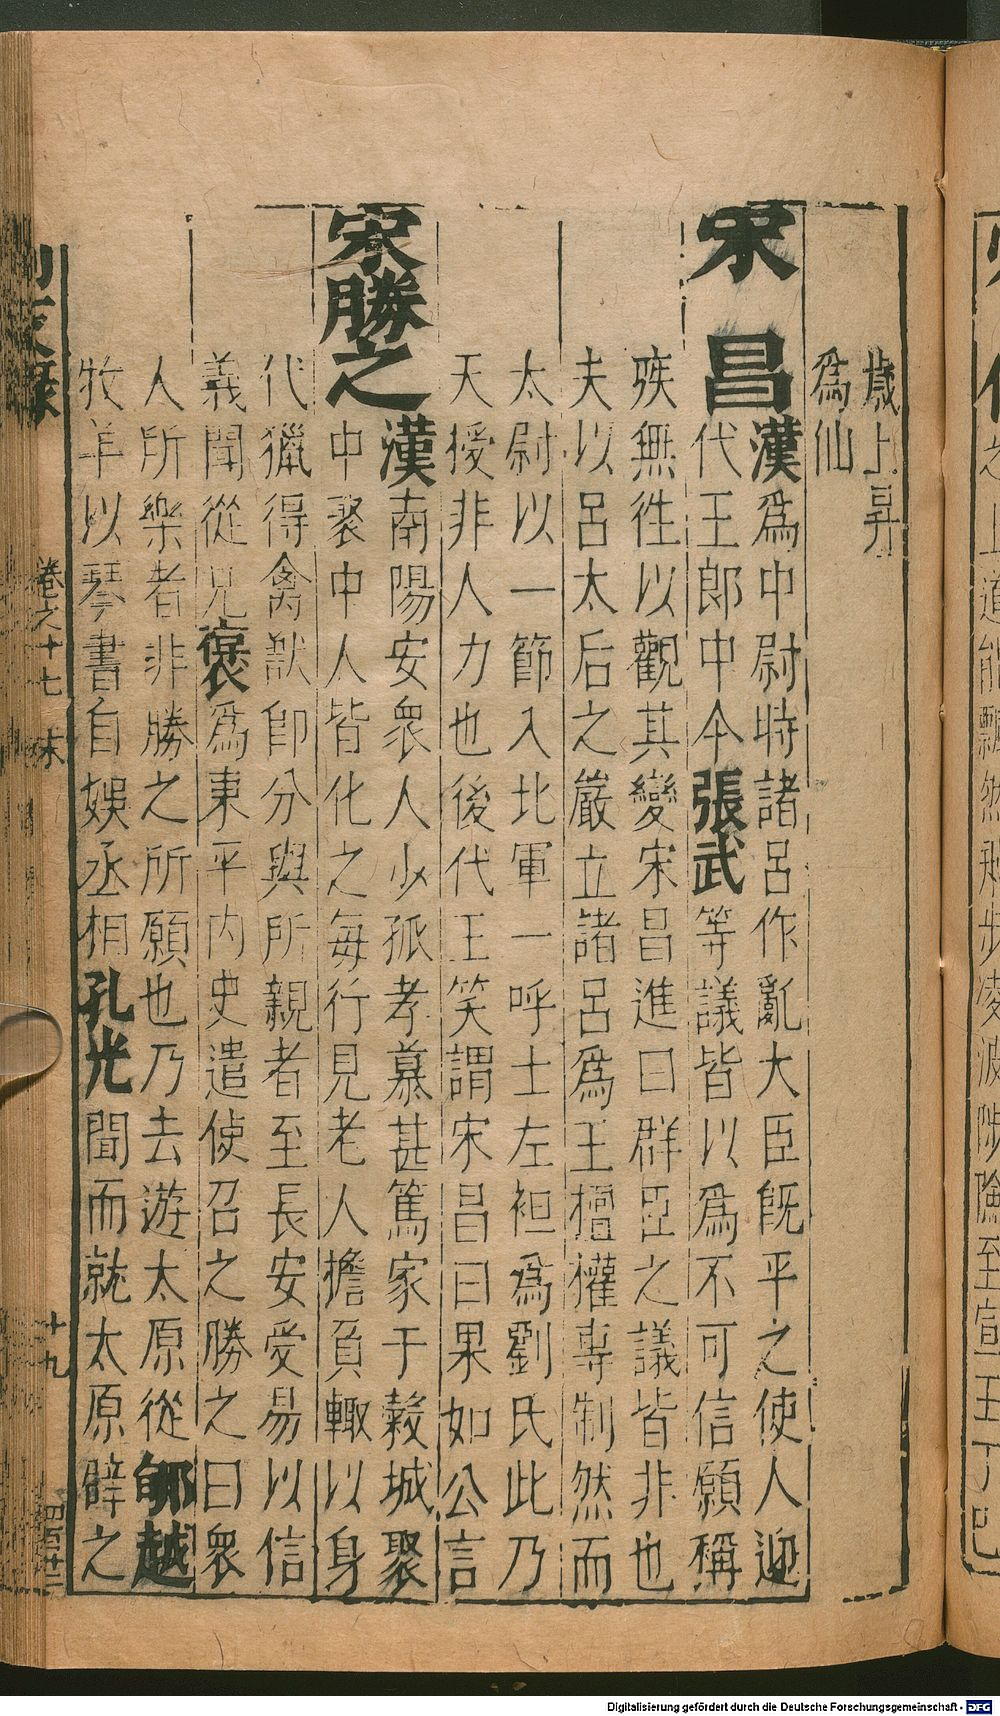 歲上昇
為仙
宋昌漢為中尉時諸呂作亂大臣既平之使人迎
代王郎中令張武等議皆以為不可信願稱
疾無徃以觀其變宋昌進曰群臣之議皆非也
夫以呂太后之嚴立諸呂為王擅權專制然而
太尉以一節入北軍一呼士左袒為劉氏此乃
天授非人力也後代王笑謂宋昌曰果如公言
宋勝之漢南陽安衆人少孤孝慕甚篤家于穀城聚
中聚中人皆化之每行見老人擔負輙以身
代獵得禽獸即分與所親者至長安受易以信
義聞從兄褒為東平内史遣使召之勝之曰衆
人所樂者非勝之所願也乃去遊太原從郇越
牧羊以琴書自娛丞相孔光聞而就太原辟之
卷之十七
十九
四百廿二
之上道能飄然飛步凌波陟險至宣王丁巳
Digitalisierung gefördert durch die Deutsche Forschungsgemeinschaft - DFG